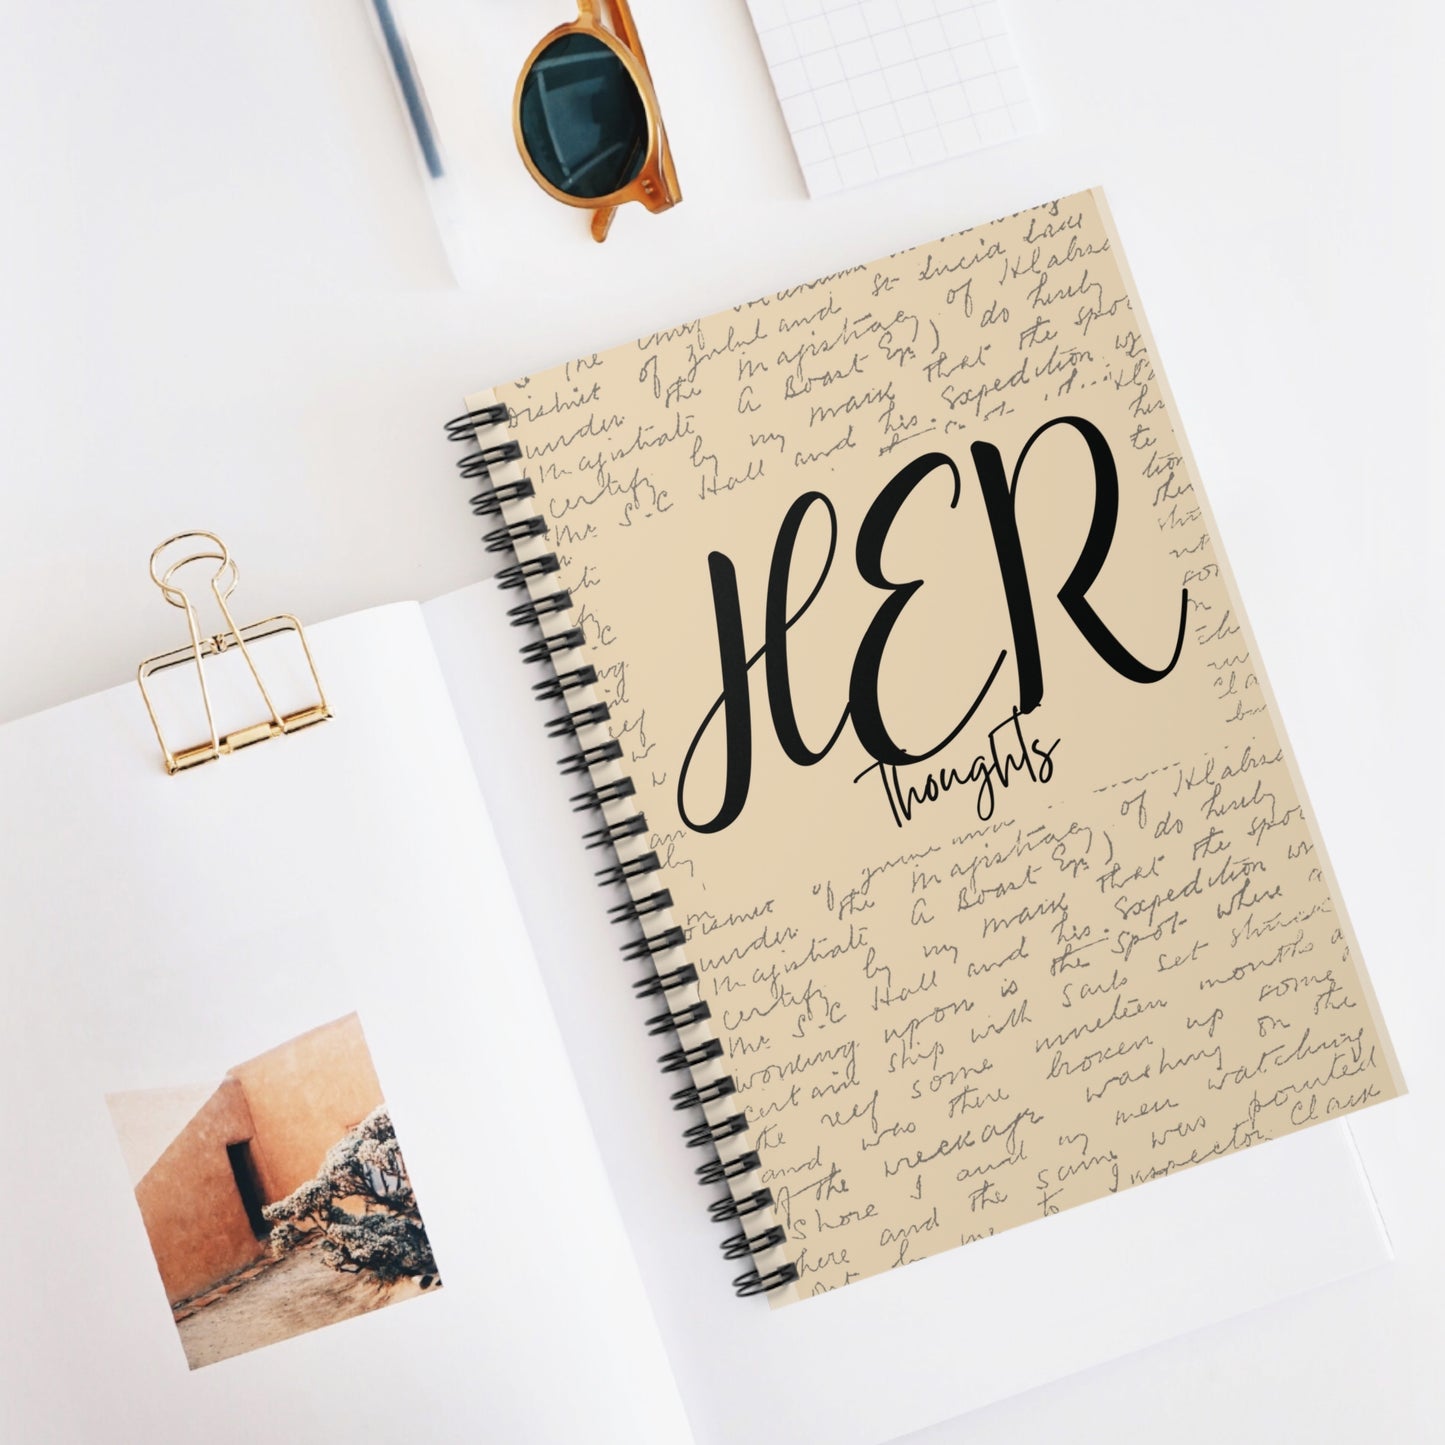 District of Zululand and St Lucia Lake
under the Magistracy of Hlabisa
(Magistrate A Boast Esq) do hereby
certify by my mark that the spot
Mr S.C Hall and his Expedition
HER
Thoughts
District of
under the Magistracy of Hlabisa
(Magistrate A Boast Esq) do hereby
certify by my mark that the spot
Mr S.C Hall and his Expedition
working upon is the spot where a
certain ship with sails set struck
the reef some nineteen months
and was there broken up some
of the wreckage washing on the
shore I and my men watching
here and the same was pointed
out by me to Inspector Clark